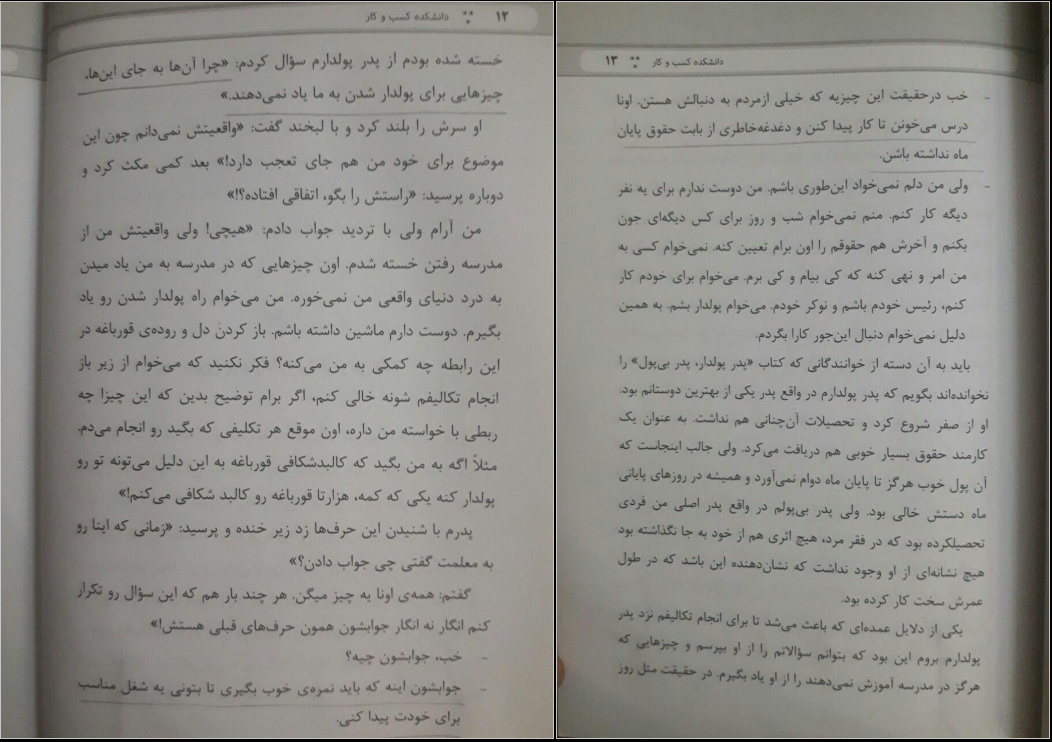 ۱۲ دانشکده کسب و کار
خسته شده بودم از پدر پولدارم سؤال کردم: «چرا آن‌ها به جای این‌ها،
چیزهایی برای پولدار شدن به ما یاد نمی‌دهند.»
او سرش را بلند کرد و با لبخند گفت: «واقعیتش نمی‌دانم چون این
موضوع برای خود من هم جای تعجب دارد!» بعد کمی مکث کرد و
دوباره پرسید: «راستش را بگو، اتفاقی افتاده؟!»
من آرام ولی با تردید جواب دادم: «هیچی! ولی واقعیتش من از
مدرسه رفتن خسته شدم. اون چیزهایی که در مدرسه به من یاد میدن
به درد دنیای واقعی من نمی‌خوره. من می‌خوام راه پولدار شدن رو یاد
بگیرم. دوست دارم ماشین داشته باشم. باز کردن دل و روده‌ی قورباغه در
این رابطه چه کمکی به من می‌کنه؟ فکر نکنید که می‌خوام از زیر باز
انجام تکالیفم شونه خالی کنم، اگر برام توضیح بدین که این چیزا چه
ربطی با خواسته من داره، اون موقع هر تکلیفی که بگید رو انجام می‌دم.
مثلاً اگه به من بگید که کالبدشکافی قورباغه به این دلیل می‌تونه تو رو
پولدار کنه یکی که کمه، هزارتا قورباغه رو کالبد شکافی می‌کنم!»
پدرم با شنیدن این حرف‌ها زد زیر خنده و پرسید: «زمانی که اینا رو
به معلمت گفتی چی جواب دادن؟»
گفتم: همه‌ی اونا یه چیز میگن. هر چند بار هم که این سؤال رو تکرار
کنم انگار نه انگار جوابشون همون حرف‌های قبلی هستش!»
- خب، جوابشون چیه؟
- جوابشون اینه که باید نمره‌ی خوب بگیری تا بتونی یه شغل مناسب
برای خودت پیدا کنی.
دانشکده کسب و کار ۱۳
- خب درحقیقت این چیزیه که خیلی ازمردم به دنبالش هستن. اونا
درس می‌خونن تا کار پیدا کنن و دغدغه‌خاطری از بابت حقوق پایان
ماه نداشته باشن.
- ولی من دلم نمی‌خواد این‌طوری باشم. من دوست ندارم برای یه نفر
دیگه کار کنم. منم نمی‌خوام شب و روز برای کس دیگه‌ای جون
بکنم و آخرش هم حقوقم را اون برام تعیین کنه. نمی‌خوام کسی به
من امر و نهی کنه که کی بیام و کی برم. می‌خوام برای خودم کار
کنم، رئیس خودم باشم و نوکر خودم. می‌خوام پولدار بشم. به همین
دلیل نمی‌خوام دنبال این‌جور کارا بگردم.
باید به آن دسته از خوانندگانی که کتاب «پدر پولدار، پدر بی‌پول» را
نخوانده‌اند بگویم که پدر پولدارم در واقع پدر یکی از بهترین دوستانم بود.
او از صفر شروع کرد و تحصیلات آن‌چنانی هم نداشت. به عنوان یک
کارمند حقوق بسیار خوبی هم دریافت می‌کرد. ولی جالب اینجاست که
آن پول خوب هرگز تا پایان ماه دوام نمی‌آورد و همیشه در روزهای پایانی
ماه دستش خالی بود. ولی پدر بی‌پولم در واقع پدر اصلی من فردی
تحصیلکرده بود که در فقر مرد، هیچ اثری هم از خود به جا نگذاشته بود
هیچ نشانه‌ای از او وجود نداشت که نشان‌دهنده این باشد که در طول
عمرش سخت کار کرده بود.
یکی از دلایل عمده‌ای که باعث می‌شد تا برای انجام تکالیفم نزد پدر
پولدارم بروم این بود که بتوانم سؤالاتم را از او بپرسم و چیزهایی که
هرگز در مدرسه آموزش نمی‌دهند را از او یاد بگیرم. در حقیقت مثل روز